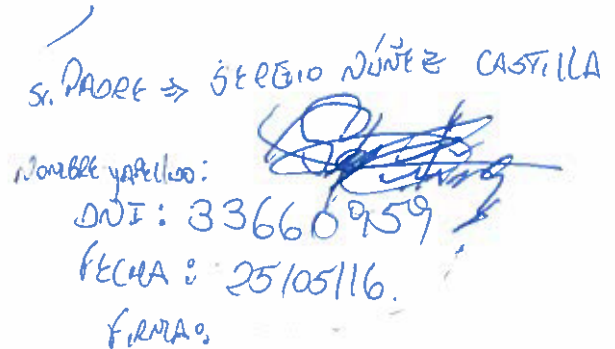 Sr. PADRE => SERGIO NÚÑEZ CASTILLA
NOMBRE y APELLIDO:
DNI: 33660959
FECHA: 25/05/16.
FIRMA: